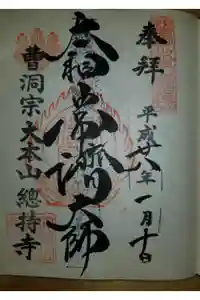 奉拝
平成廿八年一月十日
太祖常濟大師
曹洞宗大本山 總持寺